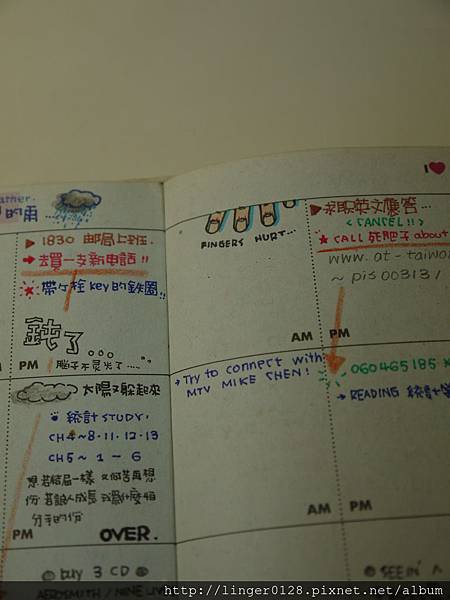 ather.
的雨
▶ 1830 郵局上班.
→ 去買一支新电話!!
帶个栓key的鉄圈!!
鈍了...
脑子不灵光了.....
PM
太陽又躲起來
統計 STUDY,
CH4~8.11.12.13
CH5~ 1 - 6
想若結局一樣 又何苦再想
分手的份
OVER.
buy 3 CD
AEROSMITH / NINE
I
FINGERS HURT...
AM
→ Try to connect with
MTV MIKE CHEN!
AM
▶求职英文應答...
<CANCEL!!>
★ CALL 死肥子 about
www. at - taiwo
~ pis 003131
PM
060465185
→ READING 統計
PM
SEEIN'
http://linger0128.pixnet.net/album